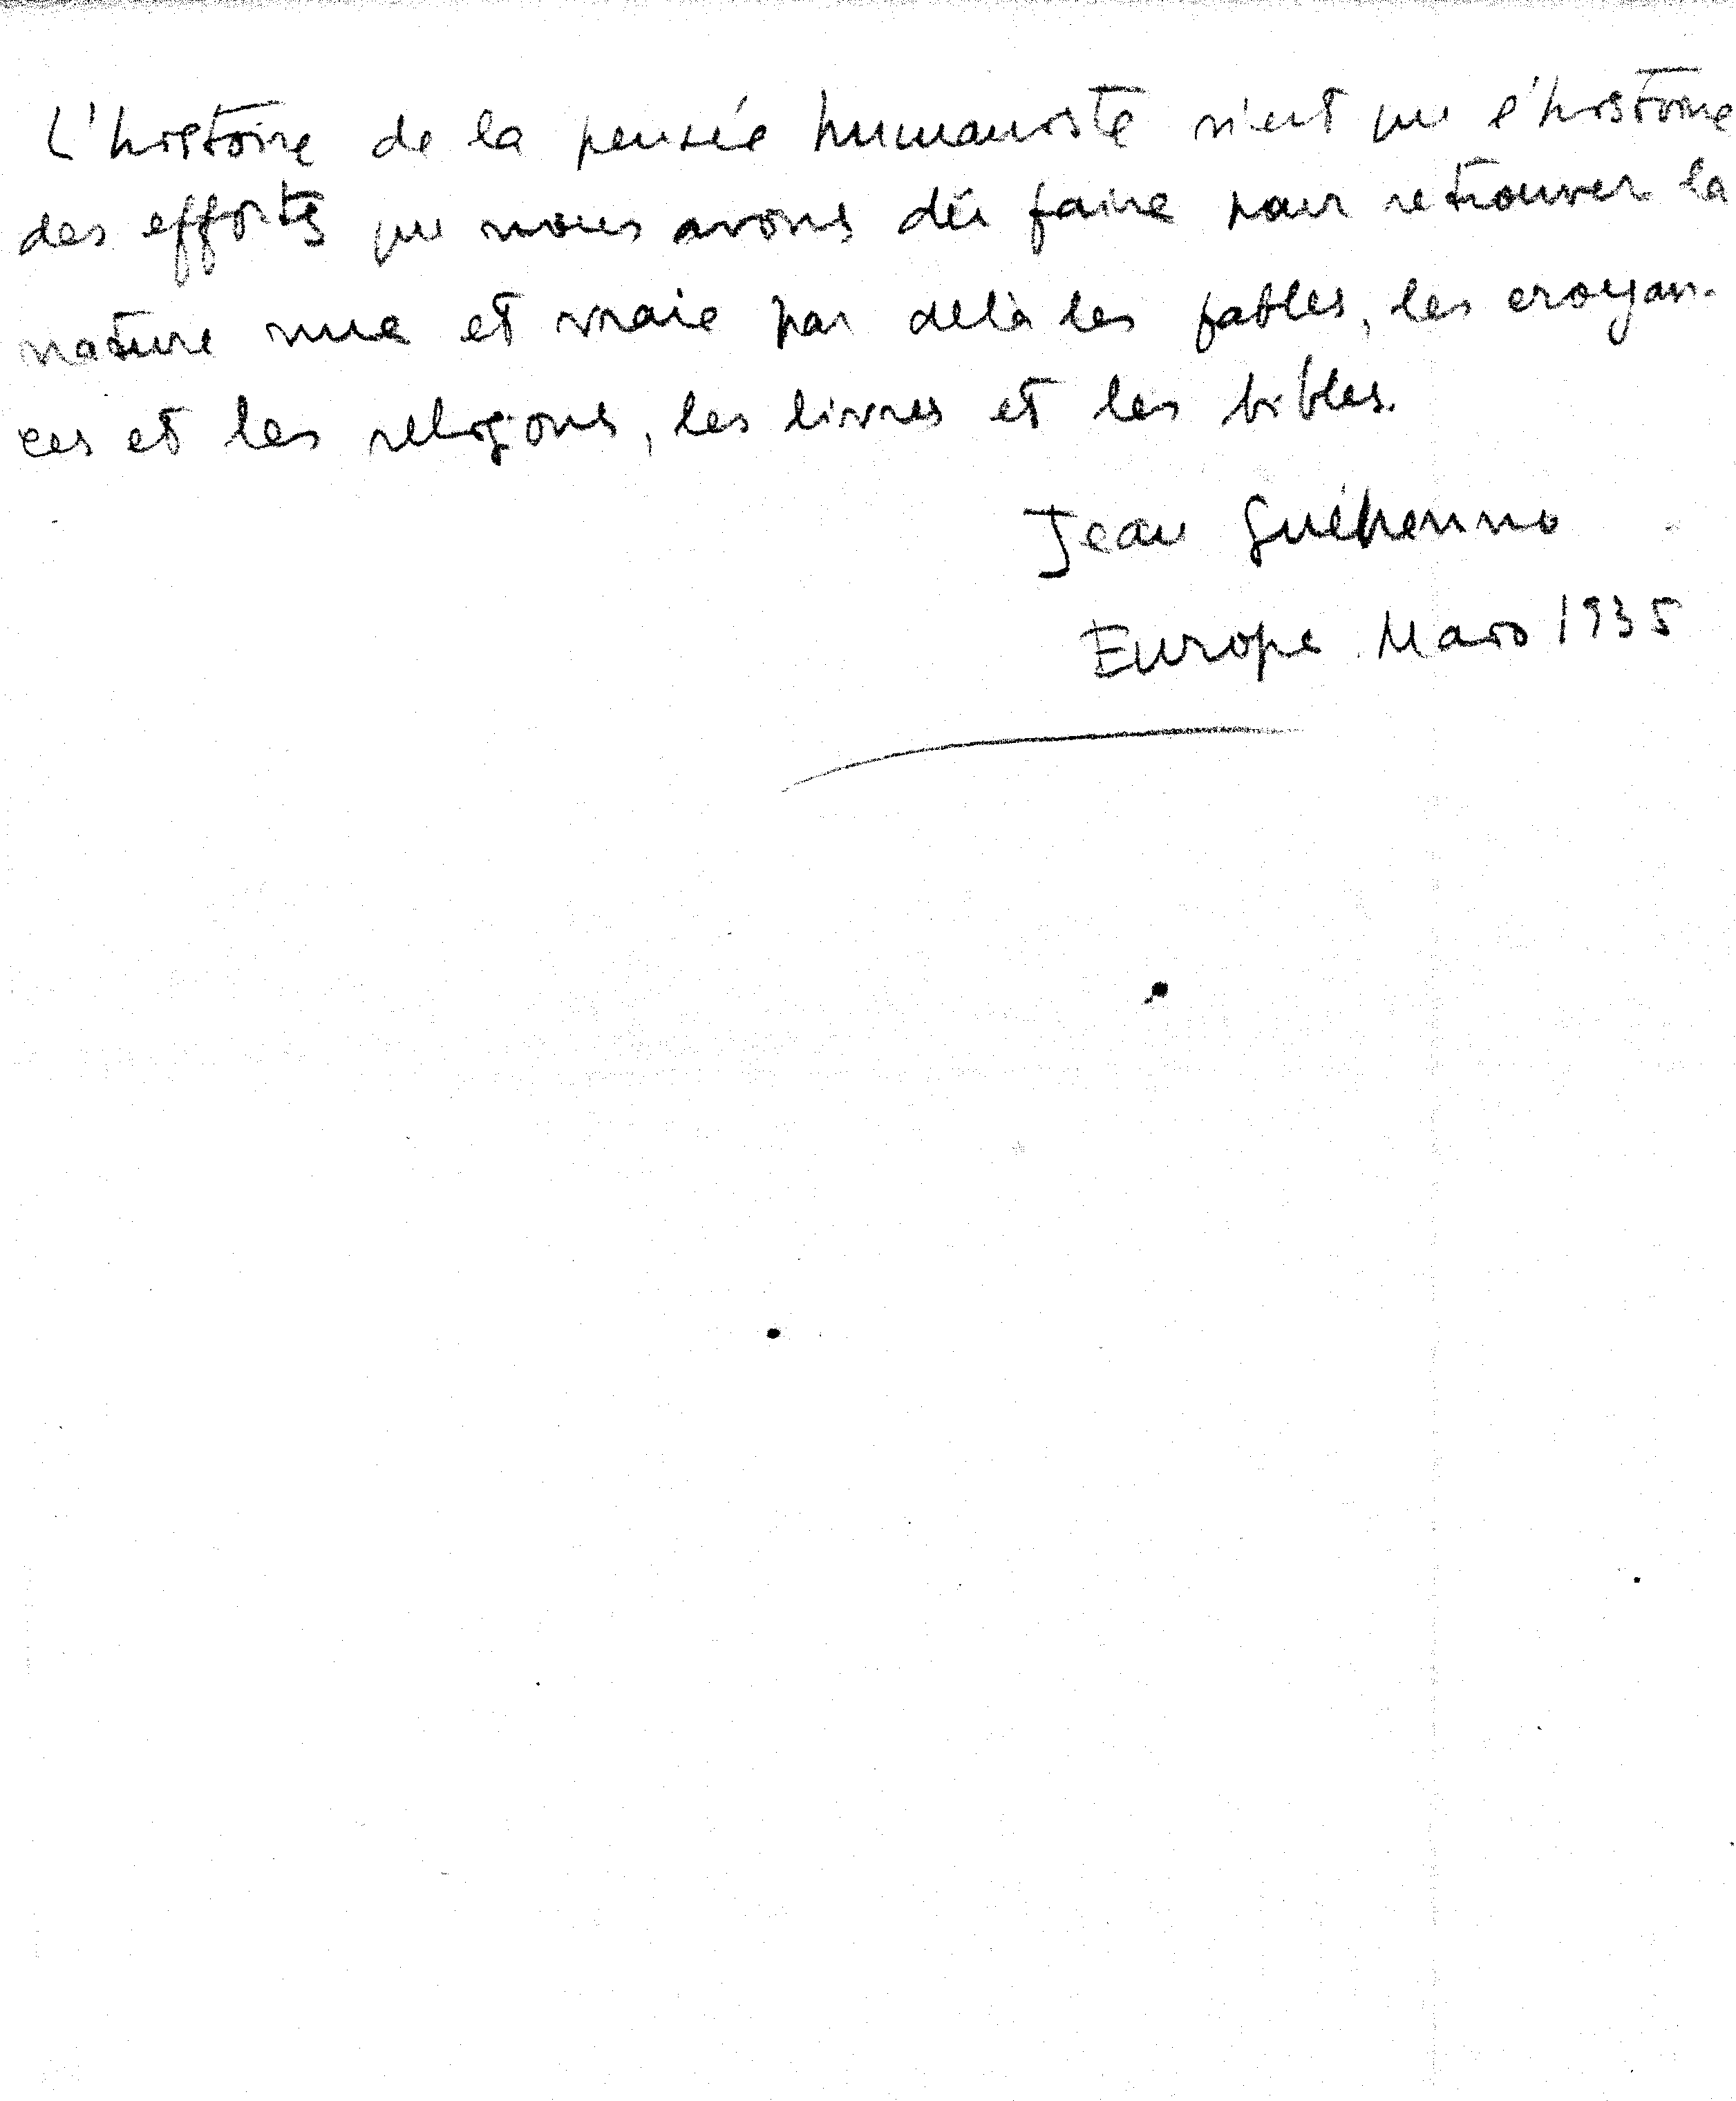 L'histoire de la pensée humaniste n'est que l'histoire
des efforts que nous avons dû faire pour retrouver la
nature nue et vraie par delà les fables, les croyan-
ces et les religions, les livres et les bibles.
Jean Guéhenno
Europe. Mars 1935